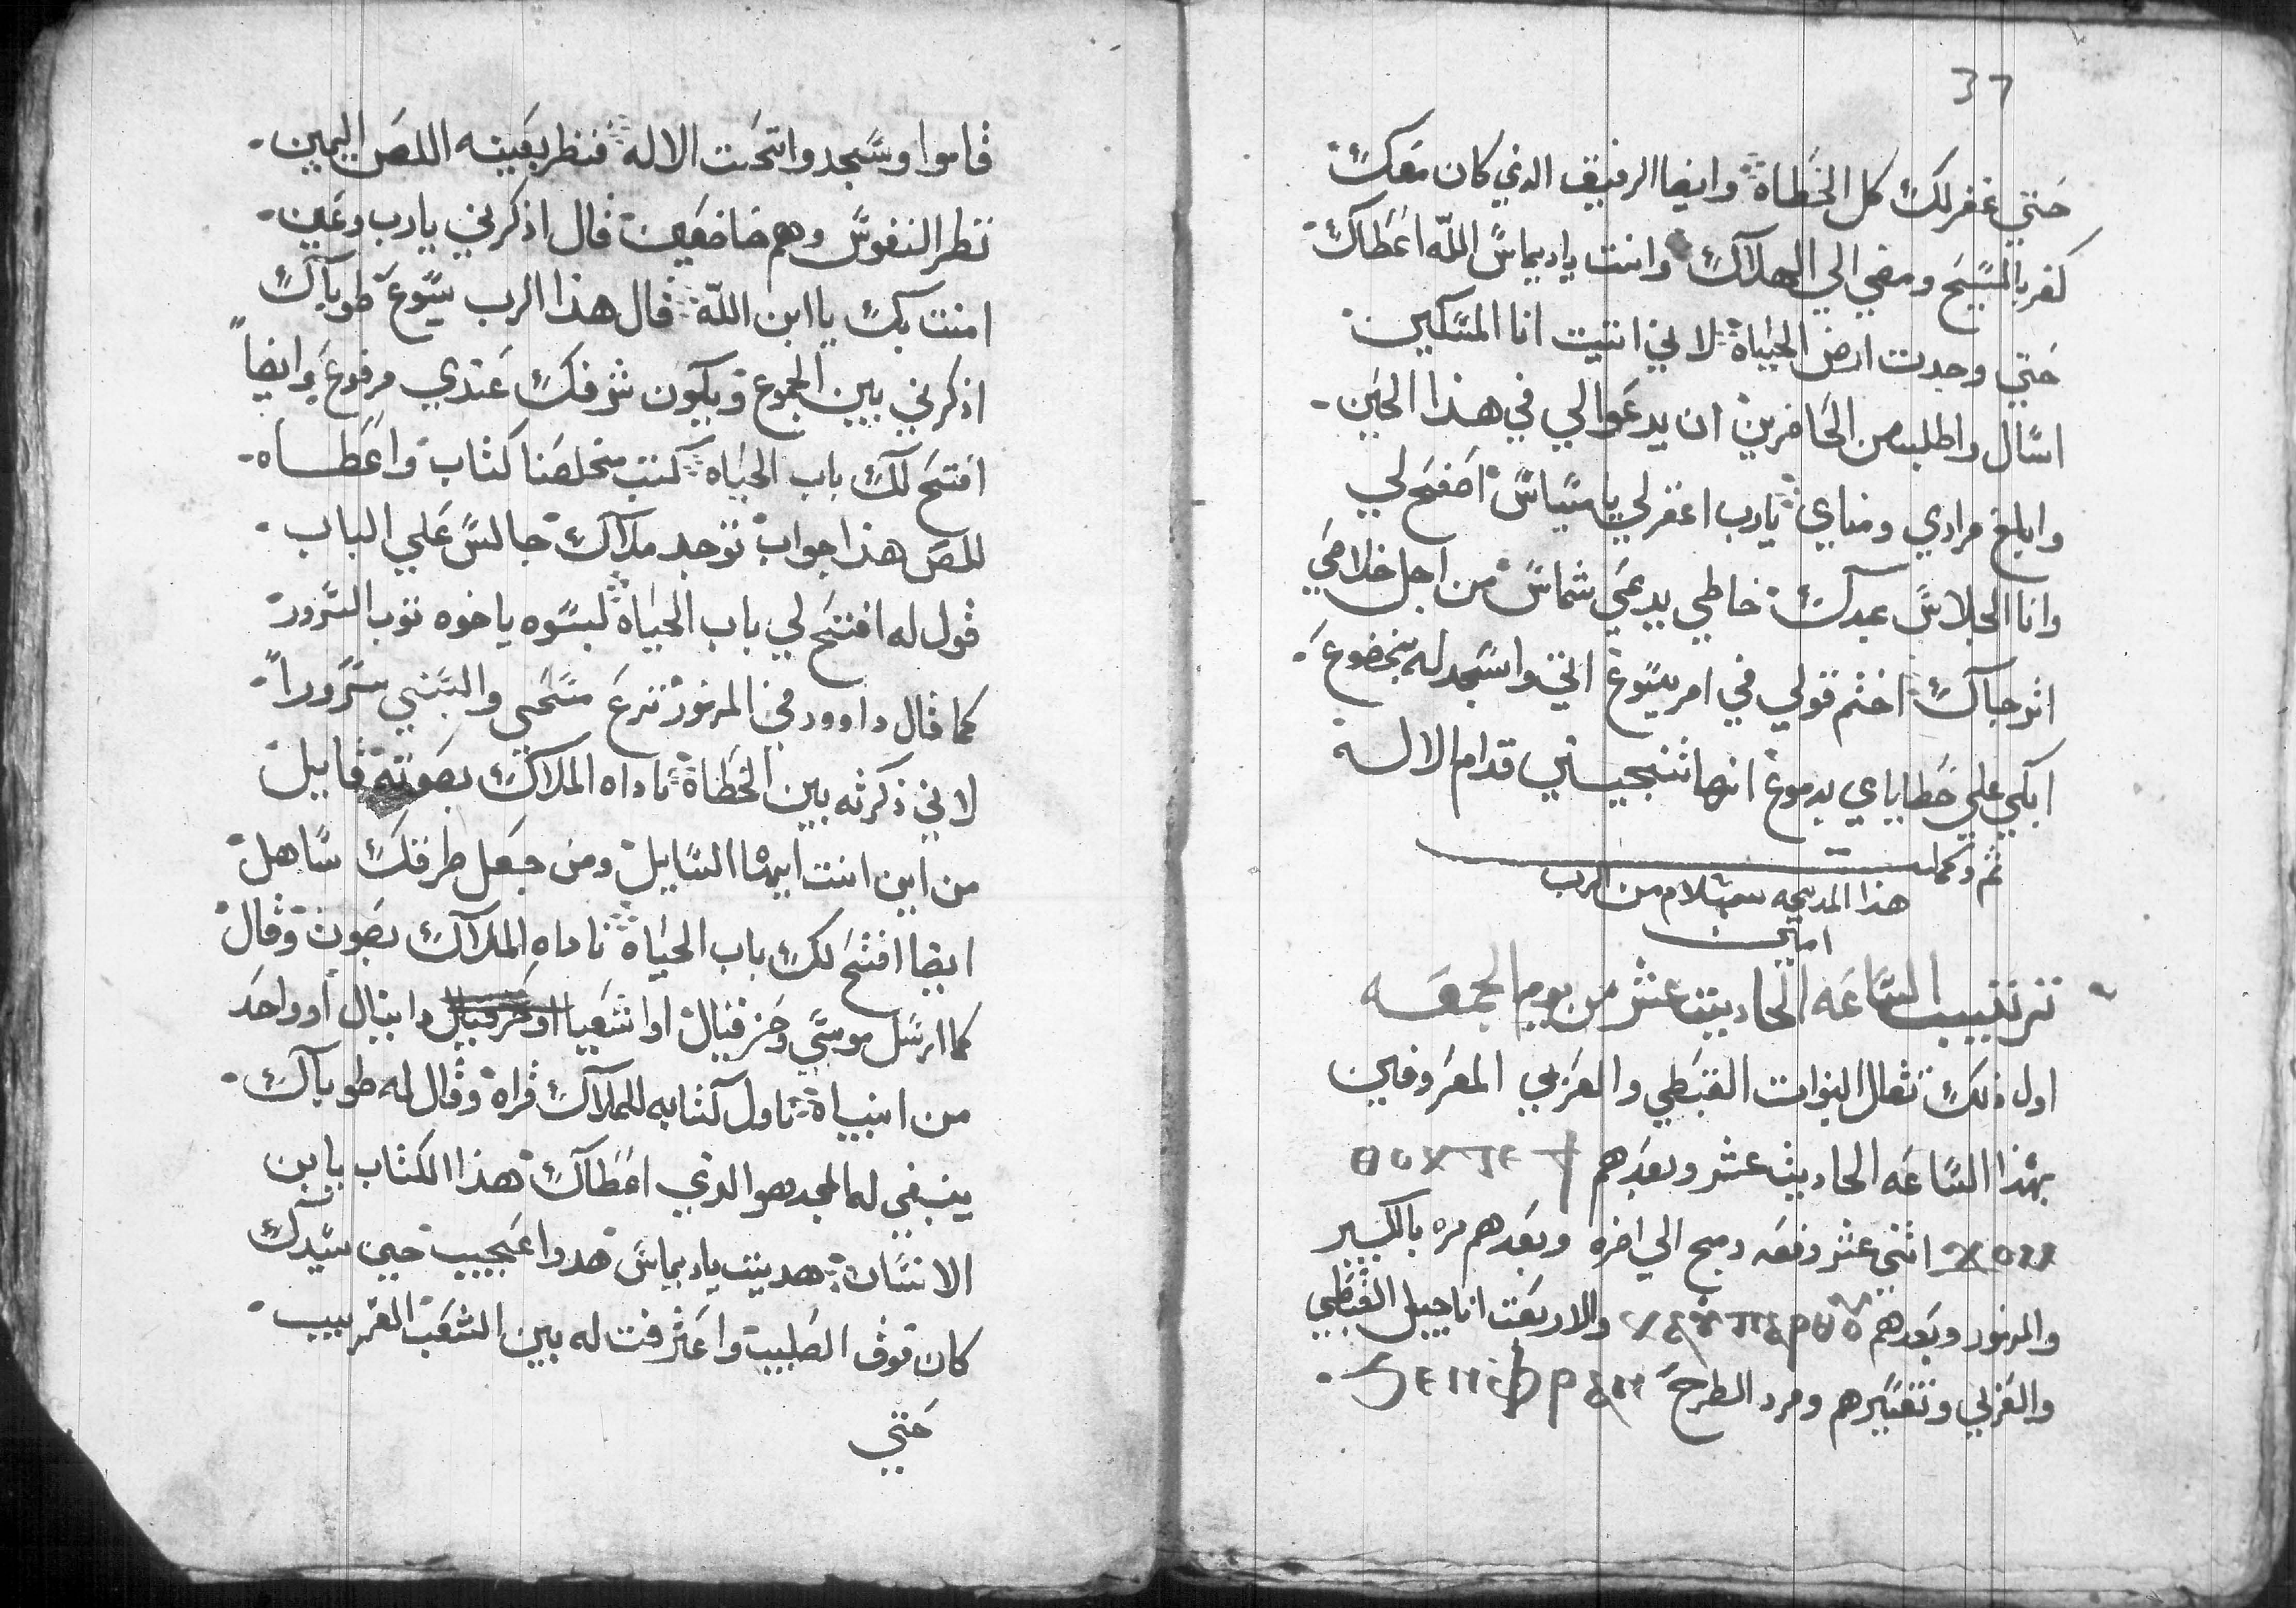 قاموا وسجدوا تحت الاله فنظر بعينه اللص اليمين
نظر النفوس وهم خاضعين قال اذكرني يارب وعين
امنت بك يا ابن الله قال هذا الرب يسوع طوباك
اذكرني بين الجموع ويكون شرفك عندي مرفوع وايضاً
افتح لك باب الحياة كتب مخلصنا كتاب واعطاه
للص هذا جواب توجد ملاك جالس علي الباب
قول له افتح لي باب الحياة لبسوه ياخوه توب السرور
كما قال داوود في المزمور نزع مسحي والبسني سروراً
لاني ذكرته بين الخطاة ناداه الملاك بصوته قايل
من اين انت ايها السايل ومن جعل طرقك ساهل
ايضا افتح لك باب الحياة ناداه الملاك بصوت وقال
كما ارسل موسي وحزقيال اواشعيا اوحزقيال دانيال اوواحد
من انبياة ناول كتابه للملاك قراه وقال له طوباك
ينبغي له المجد هو الذي اعطاك هذا الكتاب يا بن
الانسان هديت ياديماس هدوا عجيب حين سيدك
كان فوق الصليب واعترفت له بين الشعب الغريب
حتي
37
حتي غفرلك كل الخطاة وايضا الرفيق الذي كان معك
كفر بالمسيح ومضي الي الهلاك وانت ياديماس الله اعطاك
حتي وجدت ارض الحياة لاني اتيت انا المسكين
اسال واطلب من الحاضرين ان يدعوا لي في هذا الحين
وابلغ مرادي ومناي يارب اغفرلي يامسياس اصفح لي
وانا الجلاس عبدك خاطي يدعي شماس من اجل خلاصي
اترجاك اختم قولي في امر يسوع اتي واسجد له بخضوع
ابكي علي خطاياي بدموع انها تنجيني قدام الاله
تم وكمل
هذا المديحه بسلام من الرب
امين
ترتيب الساعه الحاديت عشر من يوم الجمعه
اول ذلك تقال النبوات القبطي والعربي المعروفين
بهذا الساعه الحاديت عشر وبعدهم ⲑⲱⲕ ⲧⲉ ϯ
ϫⲟⲙ اثني عشر دفعه دمج الي اخره وبعدهم مره بالكبير
والمزمور وبعدهم والاربعت اناجيل القبطي
والعربي وتفسيرهم ومرد الطرح